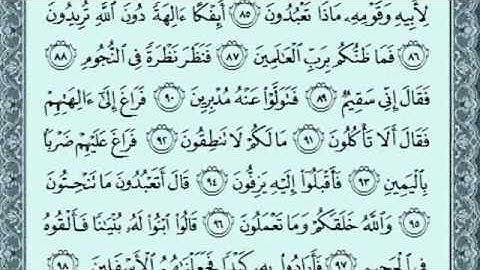 لِأَبِيهِ وَقَوْمِهِۦ مَاذَا تَعْبُدُونَ ﴿٨٥﴾ أَئِفْكًا ءَالِهَةً دُونَ ٱللَّهِ تُرِيدُونَ
﴿٨٦﴾ فَمَا ظَنُّكُم بِرَبِّ ٱلْعَٰلَمِينَ ﴿٨٧﴾ فَنَظَرَ نَظْرَةً فِى ٱلنُّجُومِ ﴿٨٨﴾
فَقَالَ إِنِّى سَقِيمٌ ﴿٨٩﴾ فَتَوَلَّوْا۟ عَنْهُ مُدْبِرِينَ ﴿٩٠﴾ فَرَاغَ إِلَىٰٓ ءَالِهَتِهِمْ
فَقَالَ أَلَا تَأْكُلُونَ ﴿٩١﴾ مَا لَكُمْ لَا تَنطِقُونَ ﴿٩٢﴾ فَرَاغَ عَلَيْهِمْ ضَرْبًۢا
بِٱلْيَمِينِ ﴿٩٣﴾ فَأَقْبَلُوٓا۟ إِلَيْهِ يَزِفُّونَ ﴿٩٤﴾ قَالَ أَتَعْبُدُونَ مَا تَنْحِتُونَ
﴿٩٥﴾ وَٱللَّهُ خَلَقَكُمْ وَمَا تَعْمَلُونَ ﴿٩٦﴾ قَالُوا۟ ٱبْنُوا۟ لَهُۥ بُنْيَٰنًا فَأَلْقُوهُ
فِى ٱلْجَحِيمِ ﴿٩٧﴾ فَأَرَادُوا۟ بِهِۦ كَيْدًا فَجَعَلْنَٰهُمُ ٱلْأَسْفَلِينَ ﴿٩٨﴾